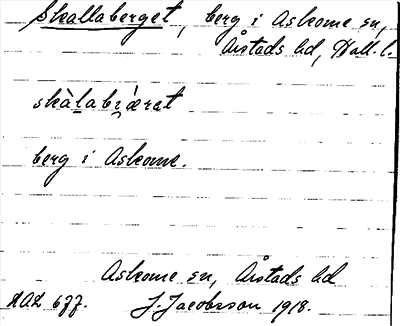 Skallaberget, berg i Askome sn,
Årstads hd, Hall. l.
skàlabræ̀rat
berg i Askome.
Askome sn, Årstads hd
J. Jacobsson 1918.